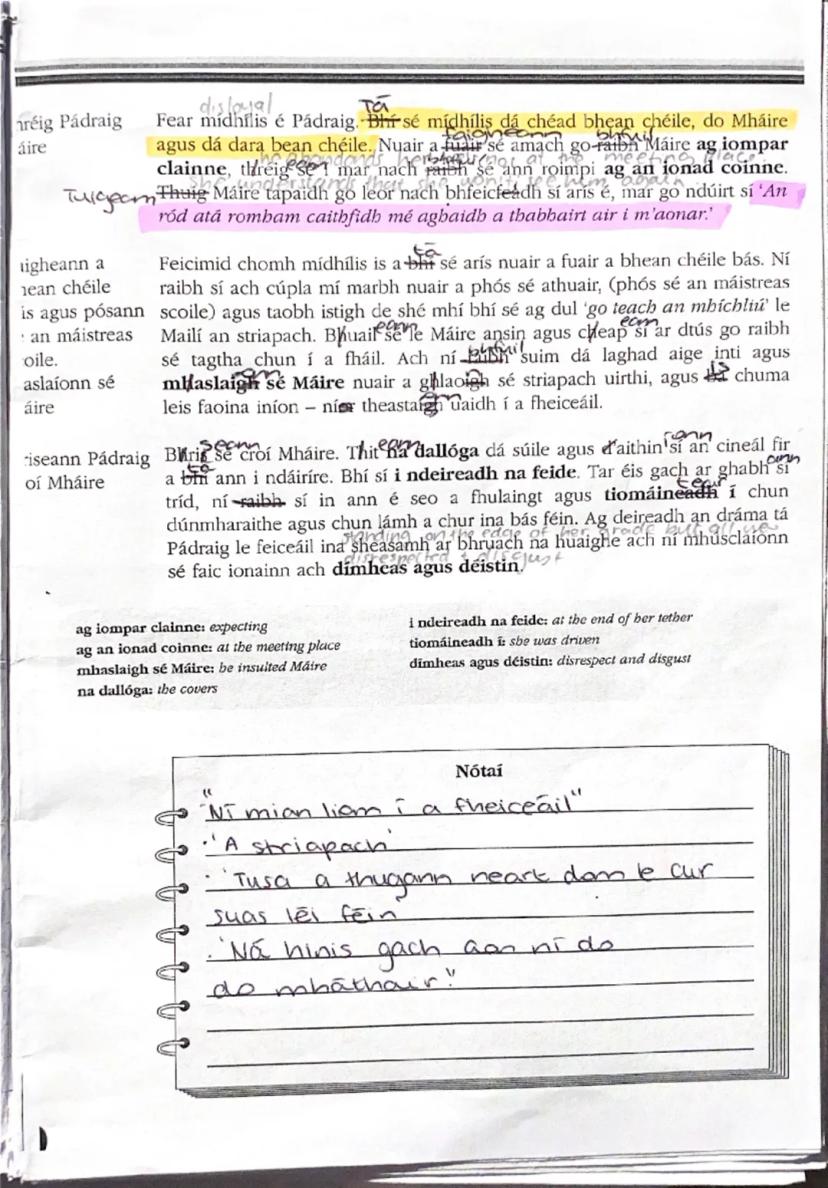 disloyal Tá
hréig Pádraig Fear mídhílis é Pádraig. Bhí sé mídhílis dá chéad bhean chéile, do Mháire
áire agus dá dara bean chéile. Nuair a fuair sé amach go raibh Máire ag iompar
faigheann bhfuil
clainne, thréig sé í mar nach raibh sé ann roimpi ag an ionad coinne.
he abandons her at the meeting place
Tuigeann Thuig Máire tapaidh go leor nach bhfeicfeadh sí arís é, mar go ndúirt sí 'An
she understands that she won't see him again
ród atá romham caithfidh mé aghaidh a thabhairt air i m'aonar.'
tá
igheann a Feicimid chomh mídhílis is a bhí sé arís nuair a fuair a bhean chéile bás. Ní
nean chéile raibh sí ach cúpla mí marbh nuair a phós sé athuair, (phós sé an máistreas
is agus pósann scoile) agus taobh istigh de shé mhí bhí sé ag dul 'go teach an mhíchliú' le
an máistreas Mailí an striapach. Bhuail sé le Máire ansin agus cheap sí ar dtús go raibh
eann eann
oile. sé tagtha chun í a fháil. Ach ní raibh suim dá laghad aige inti agus
bhfuil
aslaíonn sé mhaslaigh sé Máire nuair a ghlaoigh sé striapach uirthi, agus ba chuma
is
áire leis faoina iníon – níor theastaigh uaidh í a fheiceáil.
riseann Pádraig Bhris sé croí Mháire. Thit na dallóga dá súile agus d'aithin sí an cineál fir
seann eann íonn
oí Mháire a bhí ann i ndáiríre. Bhí sí i ndeireadh na feide. Tar éis gach ar ghabh sí
tá ann
tríd, ní raibh sí in ann é seo a fhulaingt agus tiomáineadh í chun
tear
dúnmharaithe agus chun lámh a chur ina bás féin. Ag deireadh an dráma tá
Pádraig le feiceáil ina sheasamh ar bhruach na huaighe ach ní mhúsclaíonn
standing on the edge of her grade but all we
sé faic ionainn ach dímheas agus déistin.
disrespected + disgust
ag iompar clainne: expecting
ag an ionad coinne: at the meeting place
mhaslaigh sé Máire: he insulted Máire
na dallóga: the covers
i ndeireadh na feide: at the end of her tether
tiomáineadh í: she was driven
dímheas agus déistin: disrespect and disgust
Nótaí
"Ní mian liom í a fheiceáil"
· 'A striapach'
· 'Tusa a thugann neart dom le cur
suas léi féin
· 'Ná hinis gach aon ní do
do mháthair"